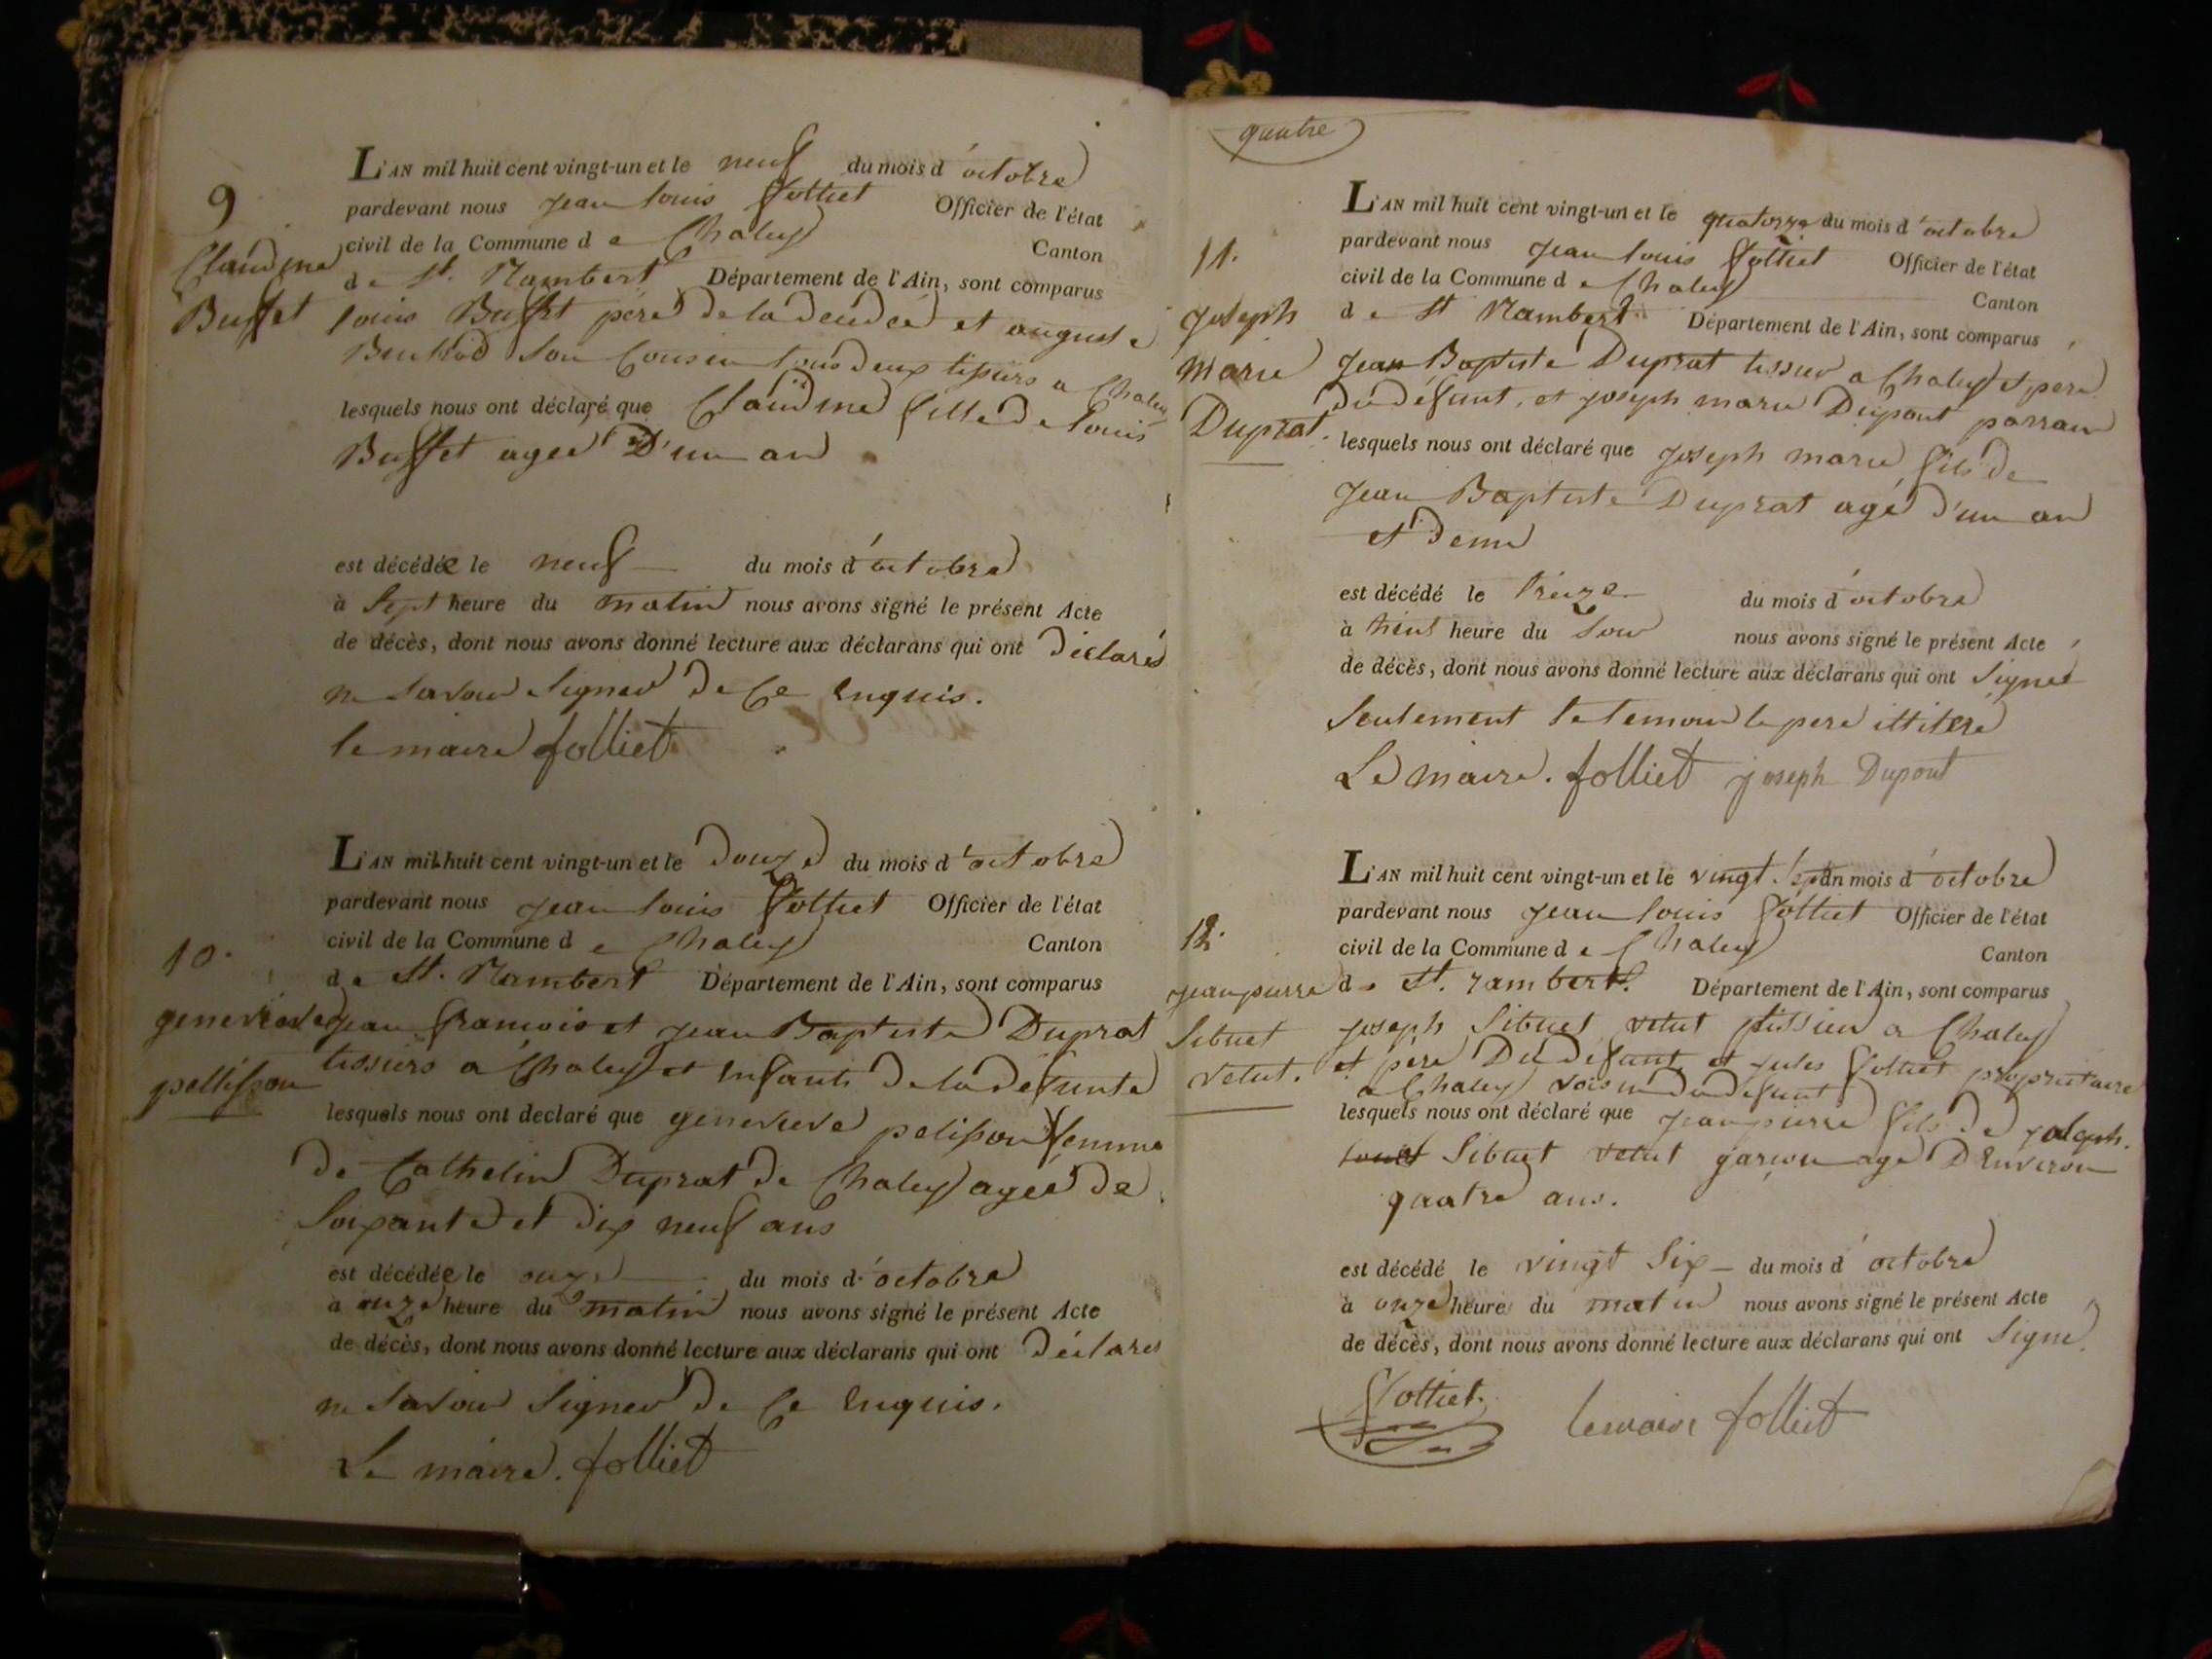 9
Claudine
Buffet
L'AN mil huit cent vingt-un et le neuf du mois d'octobre
pardevant nous jean louis folliet Officier de l'état
civil de la Commune de Chaley Canton
de St. Rambert Département de l'Ain, sont comparus
louis Buffet père de la décédée et auguste
son Cousin tous deux tissiers a Chaley
lesquels nous ont déclaré que Claudine fille de louis
Buffet agée D'un an
est décédée le neuf du mois d'octobre
à Sept heure du matin nous avons signé le présent Acte
de décès, dont nous avons donné lecture aux déclarans qui ont déclarés
ne Savoir Signer de Ce Enquis.
le maire folliet
10.
genevieve
pellisson
L'AN mil huit cent vingt-un et le douze du mois d'octobre
pardevant nous jean louis folliet Officier de l'état
civil de la Commune de Chaley Canton
de St. Rambert Département de l'Ain, sont comparus
jean francois et jean Baptiste Duprat
tissiers a Chaley et Enfants de la defunte
lesquels nous ont declaré que genevieve pelisson femme
de Cathelin Duprat de Chaley agée de
Soixante et dix neuf ans
est décédée le onze du mois d'octobre
à onze heure du matin nous avons signé le présent Acte
de décès, dont nous avons donné lecture aux déclarans qui ont déclarés
ne Savoir Signer de Ce Enquis.
Le maire. folliet
quatre
11.
joseph
marie
Duprat.
L'AN mil huit cent vingt-un et le quatorze du mois d'octobre
pardevant nous jean louis folliet Officier de l'état
civil de la Commune de Chaley Canton
de St Rambert Département de l'Ain, sont comparus
jean Baptiste Duprat tissier a Chaley et pere
du défunt, et joseph marie Dupont parrain
lesquels nous ont déclaré que joseph marie fils de
jean Baptiste Duprat agé d'un an
et demi
est décédé le treize du mois d'octobre
à huit heure du Soir nous avons signé le présent Acte
de décès, dont nous avons donné lecture aux déclarans qui ont Signés
Seulement le temoin le pere ittiteré
Le maire. folliet joseph Dupont
12.
jean pierre
Sibuet
vetut.
L'AN mil huit cent vingt-un et le vingt Sept du mois d'octobre
pardevant nous jean louis folliet Officier de l'état
civil de la Commune de Chaley Canton
de St. rambert. Département de l'Ain, sont comparus
joseph Sibuet vetut tissier a Chaley
et père Du défunt et jules folliet proprietaire
a Chaley voisin du defunt
lesquels nous ont déclaré que jean pierre fils de joseph.
Sibuet vetut garçon agé D'Environ
quatre ans.
est décédé le vingt Six du mois d'octobre
à onze heure du matin nous avons signé le présent Acte
de décès, dont nous avons donné lecture aux déclarans qui ont Signé.
folliet. le maire folliet